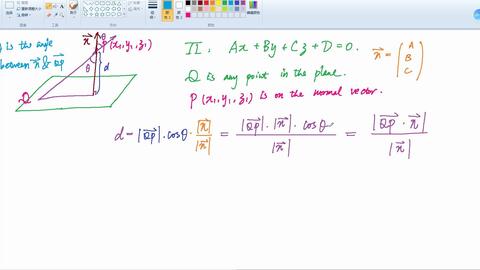 θ is the angle
between n⃗ & QP⃗
n⃗ θ
P(x₁,y₁,z₁)
θ d
Q
Π: Ax+By+Cz+D=0.
n⃗ = (A B C)
Q is any point in the plane.
P (x₁,y₁,z₁) is on the normal vector.
d = |QP⃗|·cosθ·|n⃗|/|n⃗| = |QP⃗|·|n⃗|·cosθ/|n⃗| = |QP⃗·n⃗|/|n⃗|